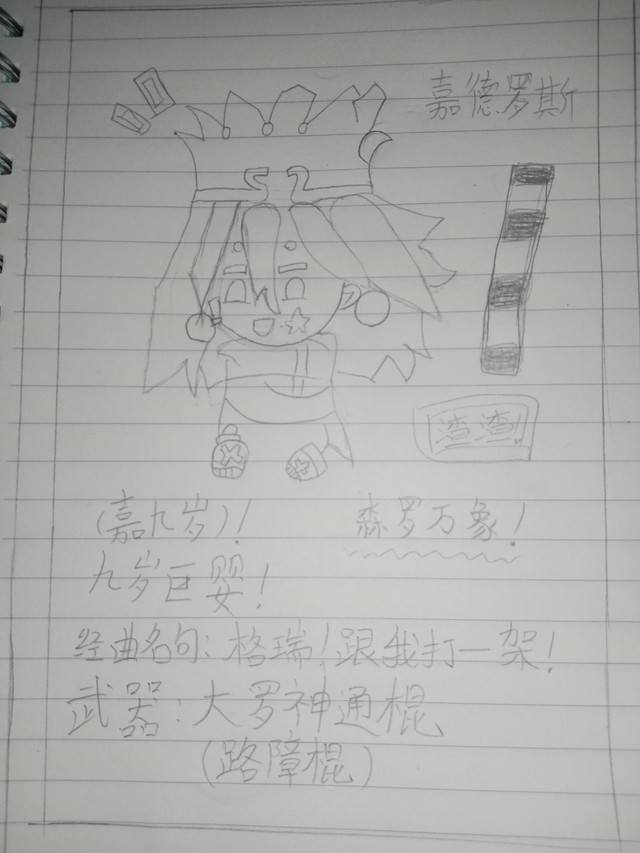 嘉德罗斯
渣渣!
(嘉九岁)!
森罗万象!
九岁巨婴!
经典名句:格瑞!跟我打一架!
武器:大罗神通棍
(路障棍)